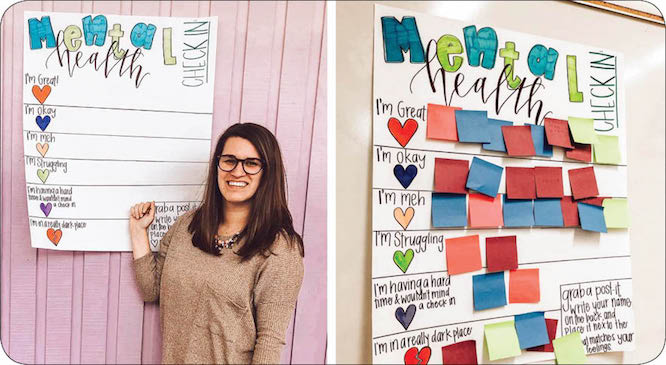 Mental
health
CHECK IN
I'm Great!
I'm Okay
I'm meh
I'm Struggling
I'm having a hard
time & wouldn't mind
a check in
I'm in a really dark place
grab a post-it
Mental
health
CHECK IN
I'm Great
I'm Okay
I'm meh
I'm Struggling
I'm having a hard
time & wouldn't mind
a check in
I'm in a really dark place
grab a post-it
write your name
on the back and
place it next to the
matches your
feelings.